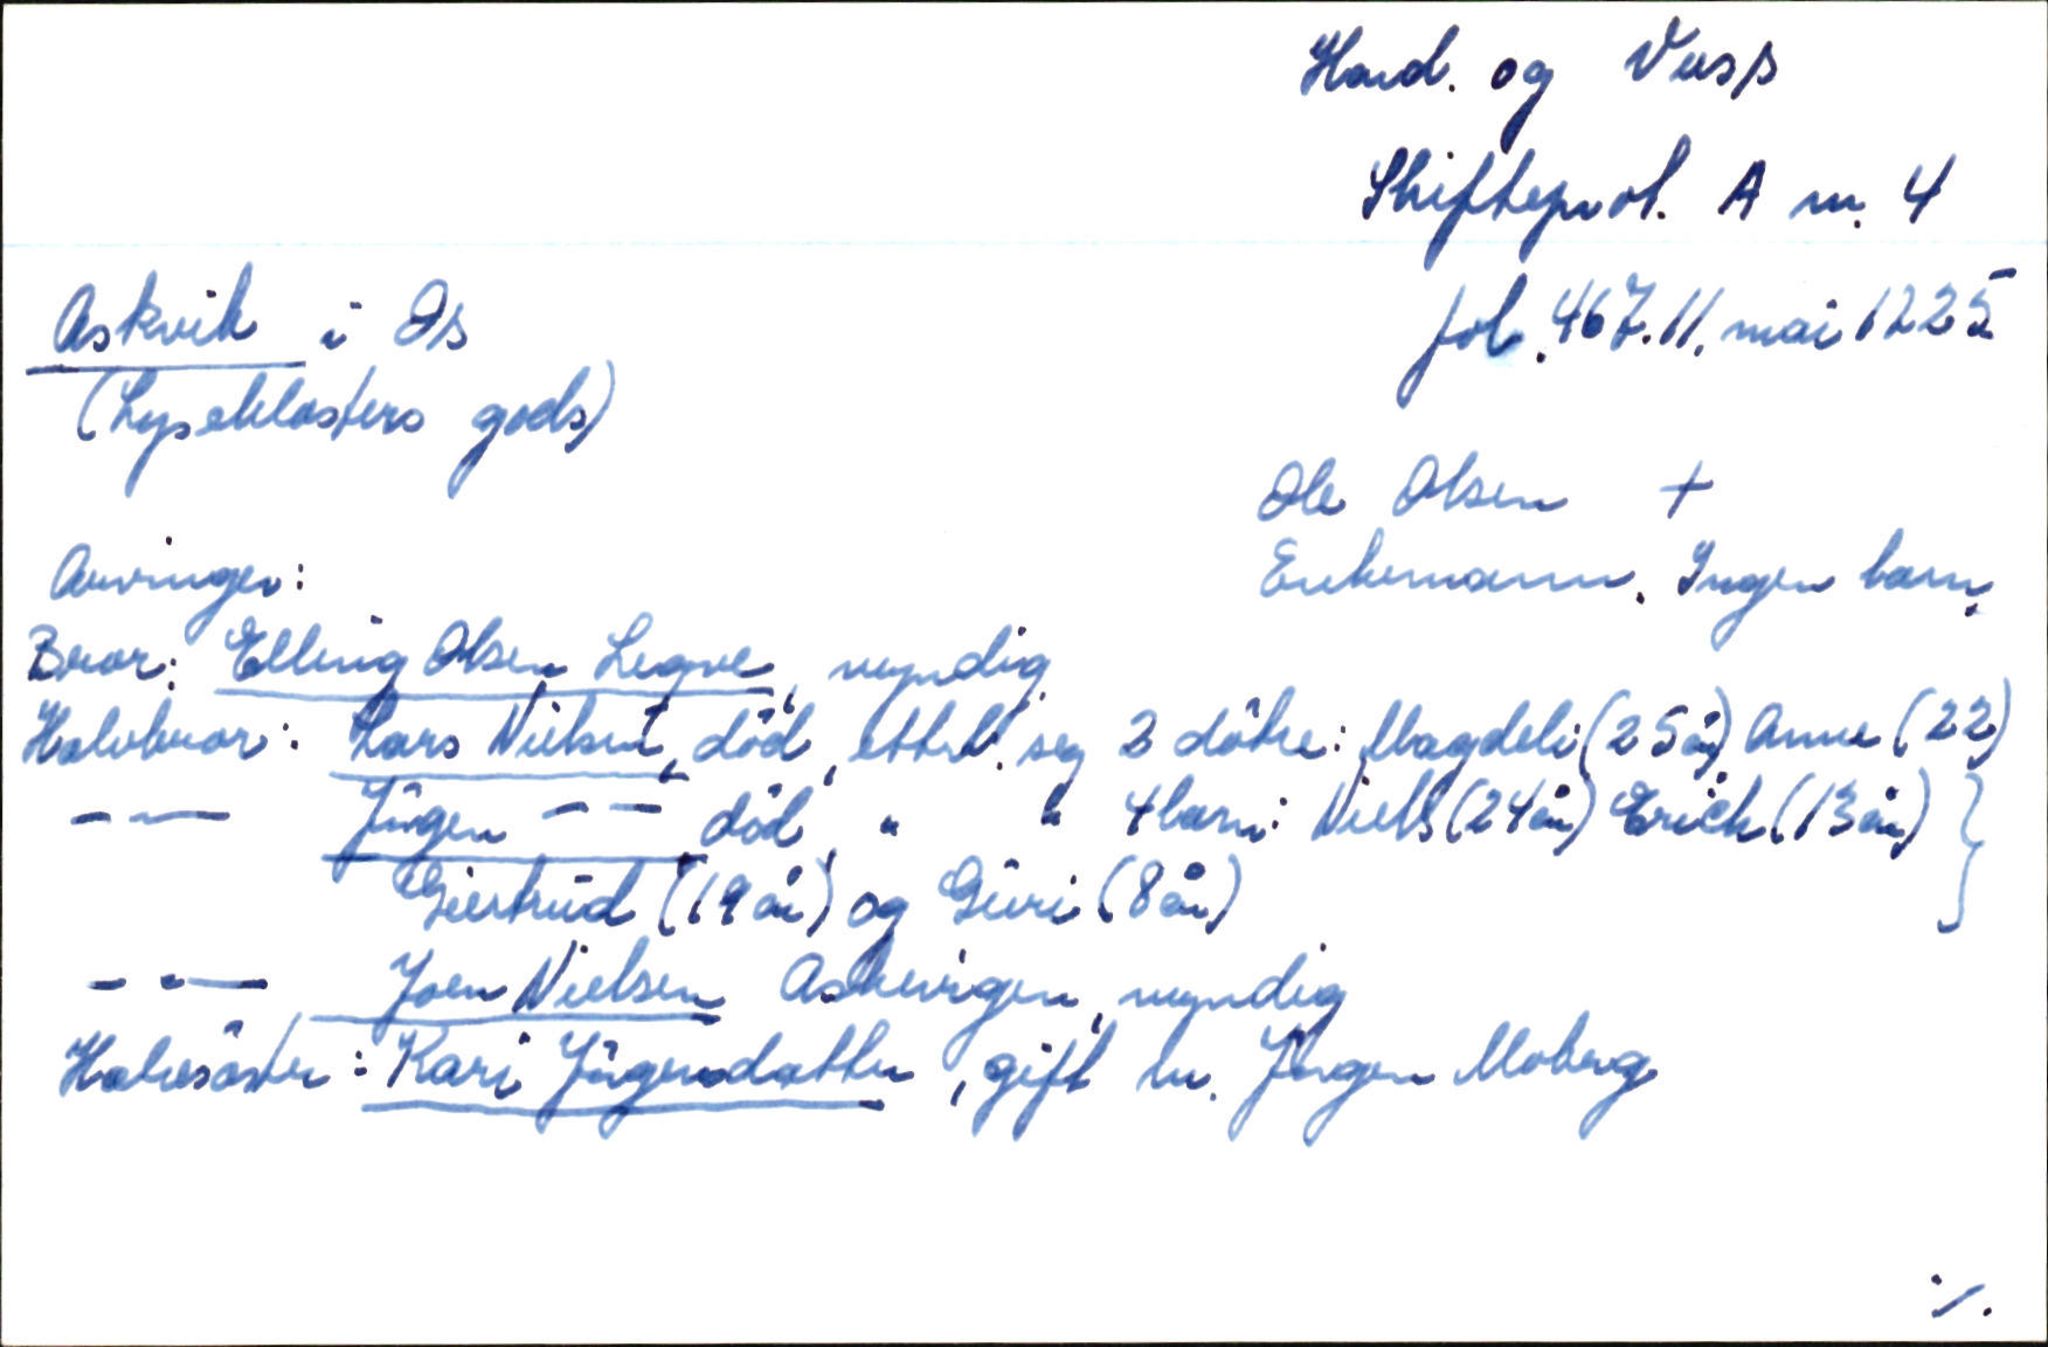 Hard. og Voss
Skifteprot. A nr. 4
Askvik i Os
fol. 467. 11. mai 1725
(Lyseklosters gods)
Ole Olsen +
Enkemann. Ingen barn.
Arvinger:
Bror: Elling Olsen Legve, myndig
Halvbror: Lars Nielsen, död, etterl. seg 2 dötre: Magdeli (25 år) Anne (22)
- — Jörgen - — död, " " 4 barn: Niels (24 år) Erich (13 år) }
Giertrud (19 år) og Guri (8 år)
- - — Joen Nielsen Askevigen, myndig
Halvsöster: Kari Jörgensdatter, gift m. Jörgen Moberg
./.